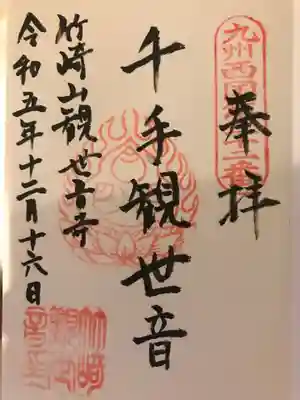 九州西国
奉拝
千手観世音
竹崎山観世音寺
令和五年十二月十六日
竹崎
観世
音寺